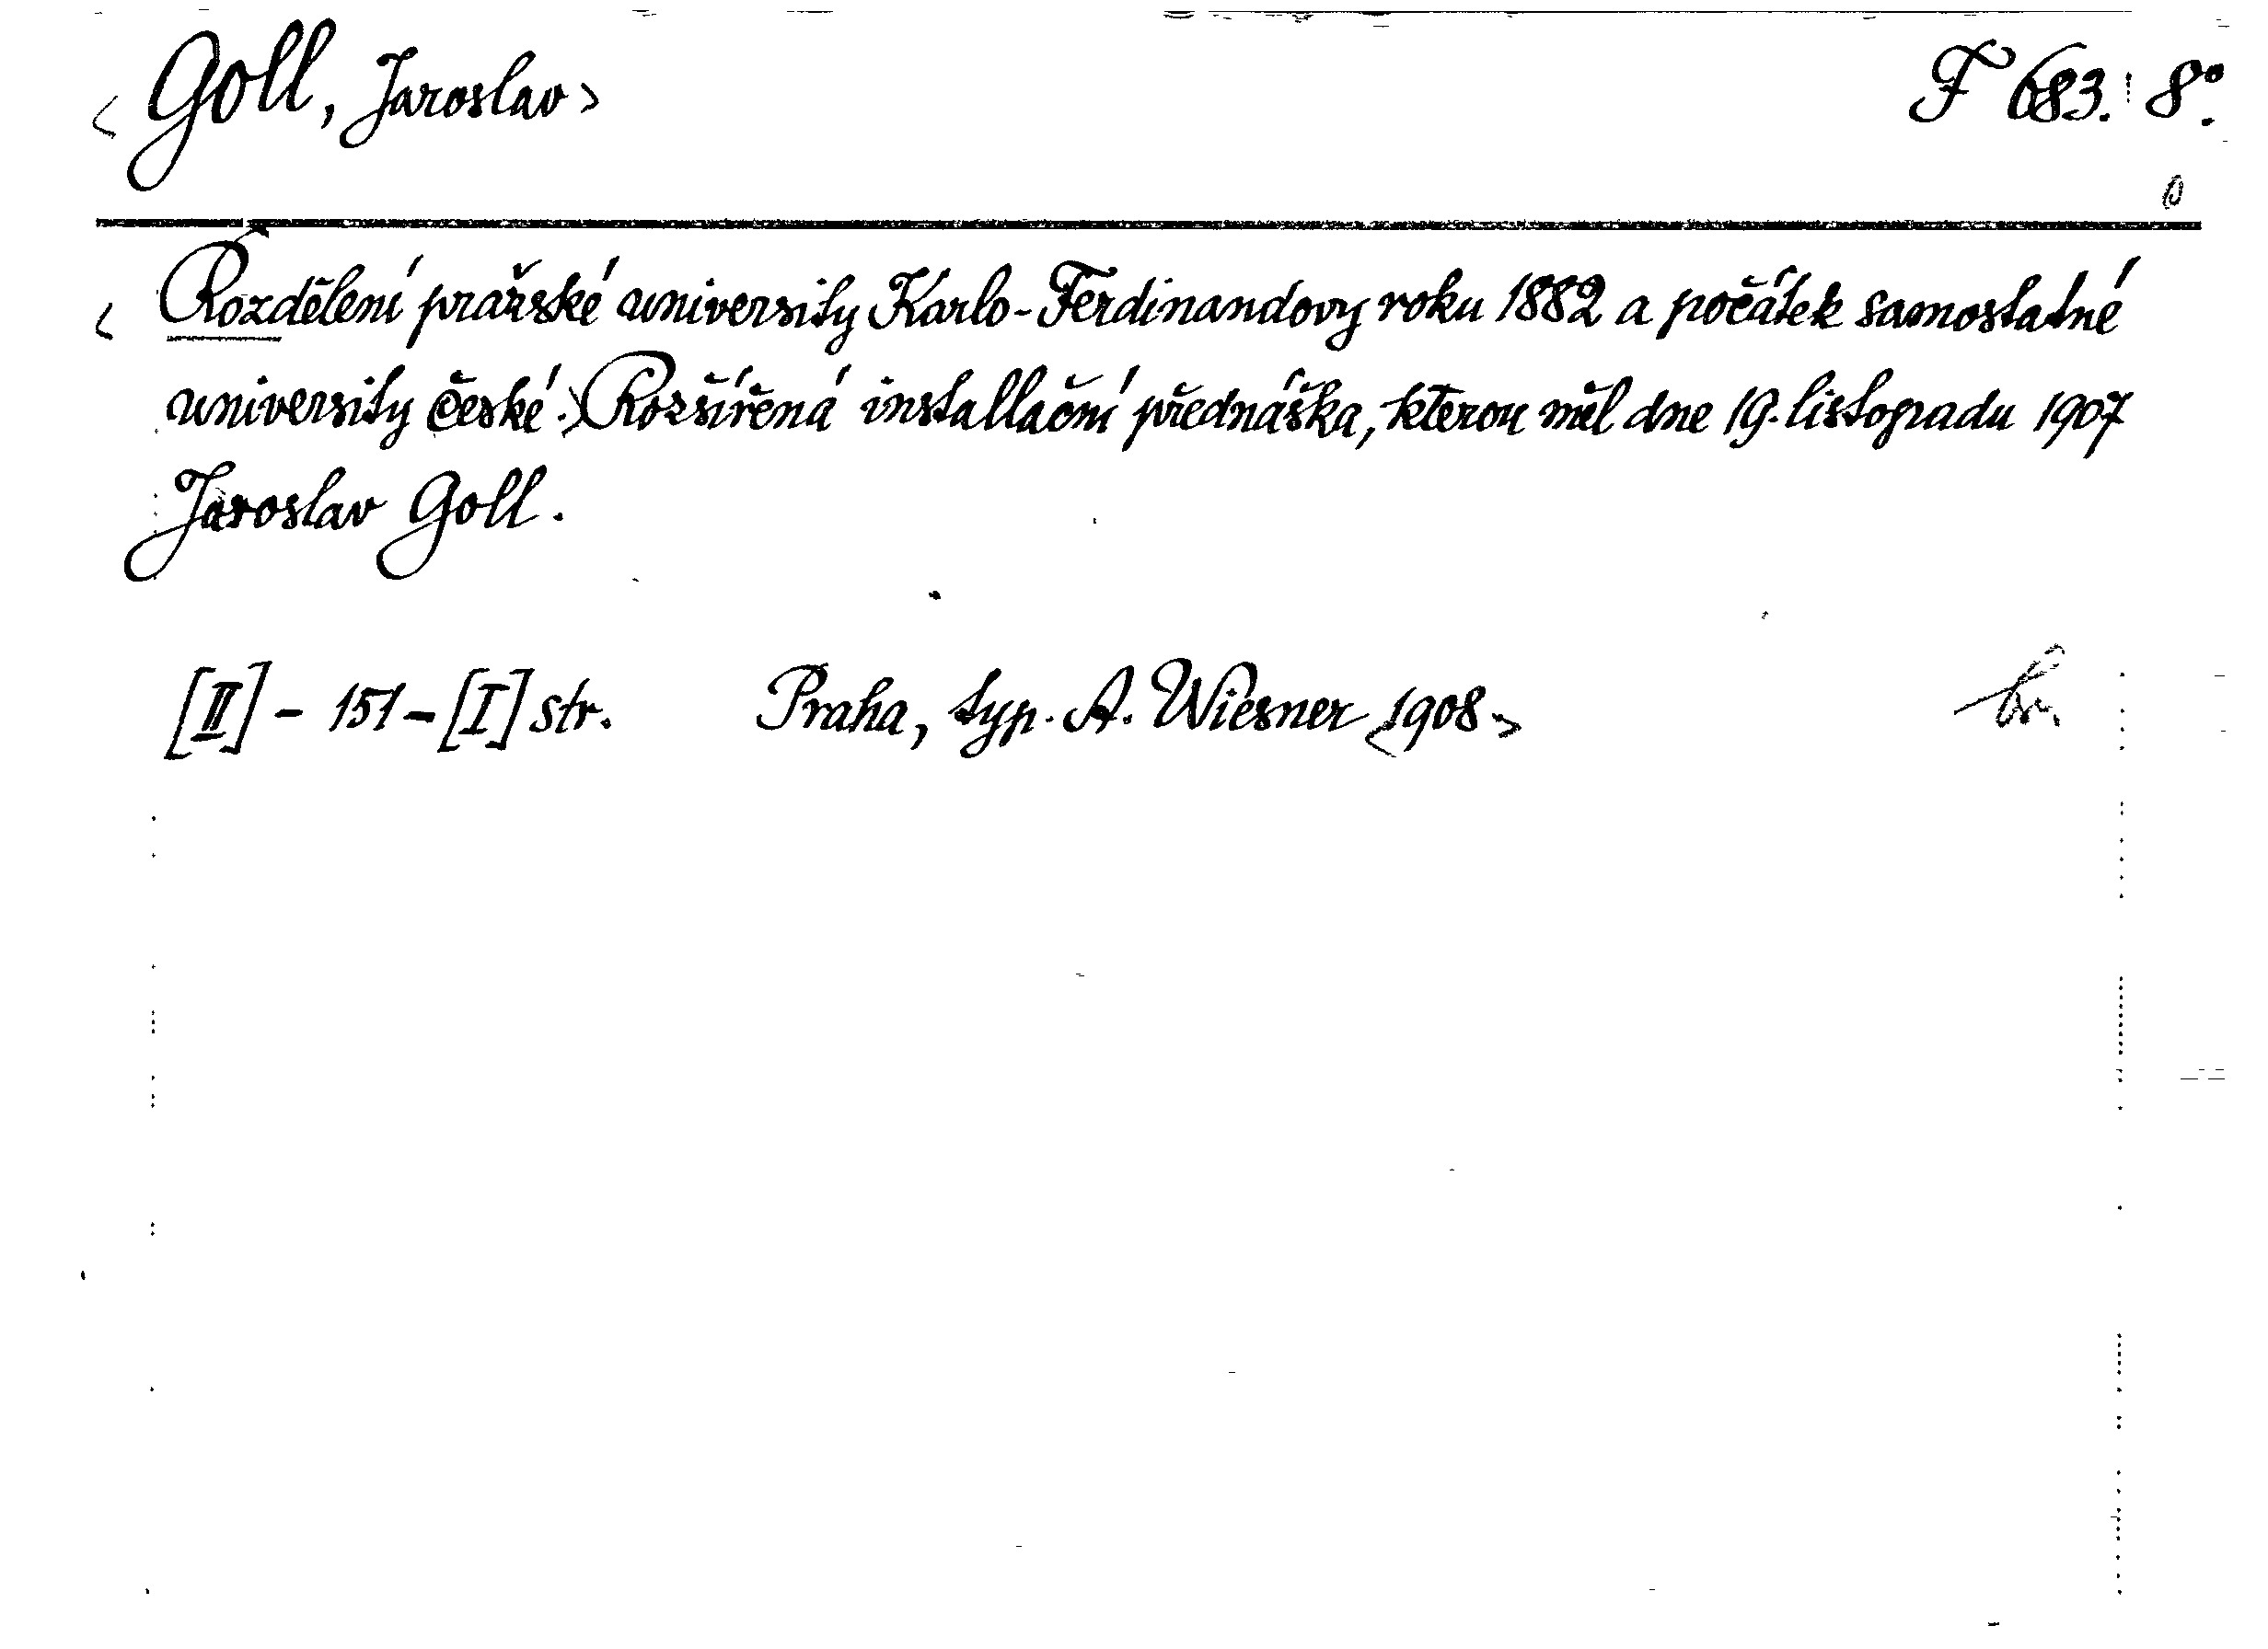 < Goll, Jaroslav > F 683. 8°.
< Rozdělení pražské university Karlo-Ferdinandovy roku 1882 a počátek samostatné
university české.> Rozšířená installační přednáška, kterou měl dne 19. listopadu 1907
Jaroslav Goll.
[II] - 151 - [I] str. Praha, typ. A. Wiesner <1908.>